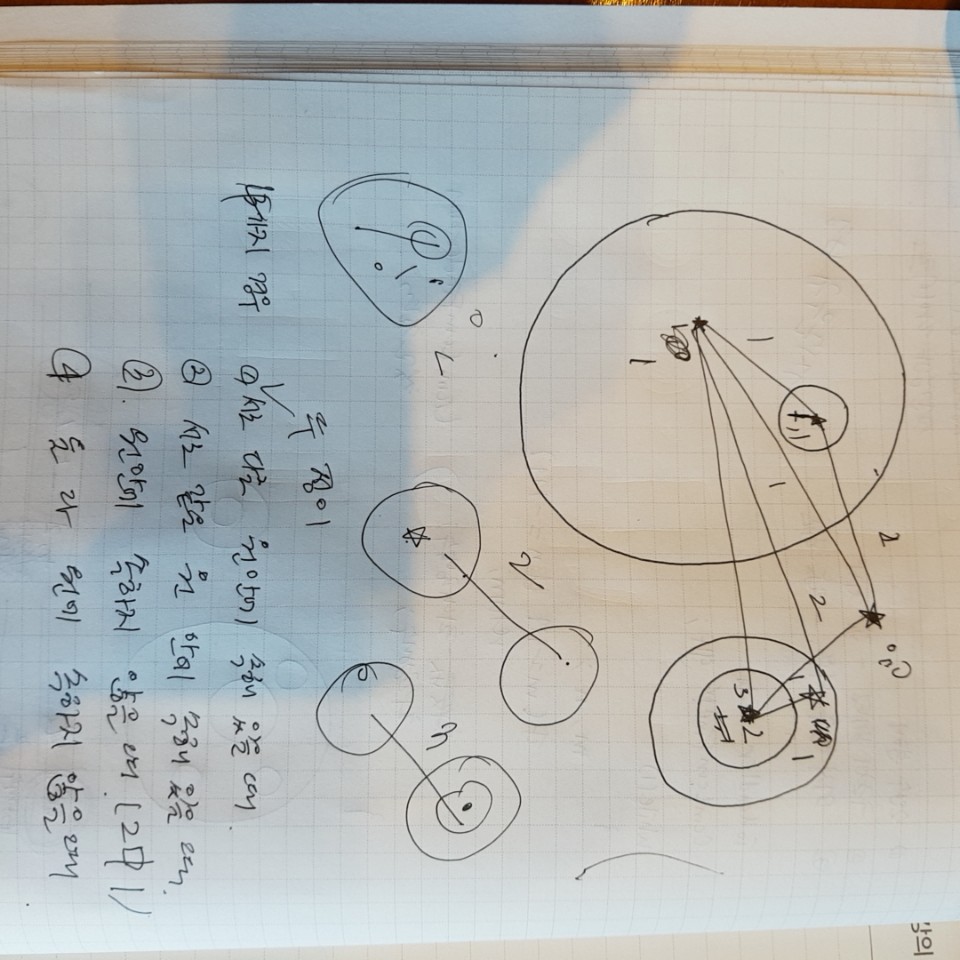 강의
2
0,0
2
1
1
1
1
1
3
2
1
2
0
3
두 점이
4가지 경우 ① 서로 다른 원안에 속해 있을 때.
② 서로 같은 원 안에 속해 있을 때.
③. 원안에 속하지 않을 때 (2中 1)
④ 둘 다 원에 속하지 않을 때